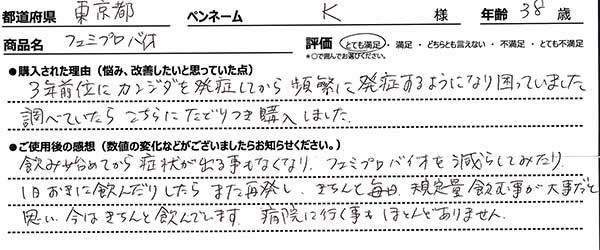 都道府県 東京都 ペンネーム K 様 年齢 38 歳
商品名 フェミプロバイオ 評価 とても満足・満足・どちらとも言えない・不満足・とても不満足
*○で囲んでお選びください。
●購入された理由（悩み、改善したいと思っていた点）
3年前位にカンジダを発症してから頻繁に発症するようになり困っていました
調べていたらこちらにたどりつき購入しました。
●ご使用後の感想（数値の変化などがございましたらお知らせください。）
飲み始めてから症状が出る事もなくなり、フェミプロバイオを減らしてみたり、
1日おきに飲んだりしたらまた再発し、きちんと毎日、規定量飲む事が大事だと
思い、今はきちんと飲んでます。病院に行く事もほとんどありません。